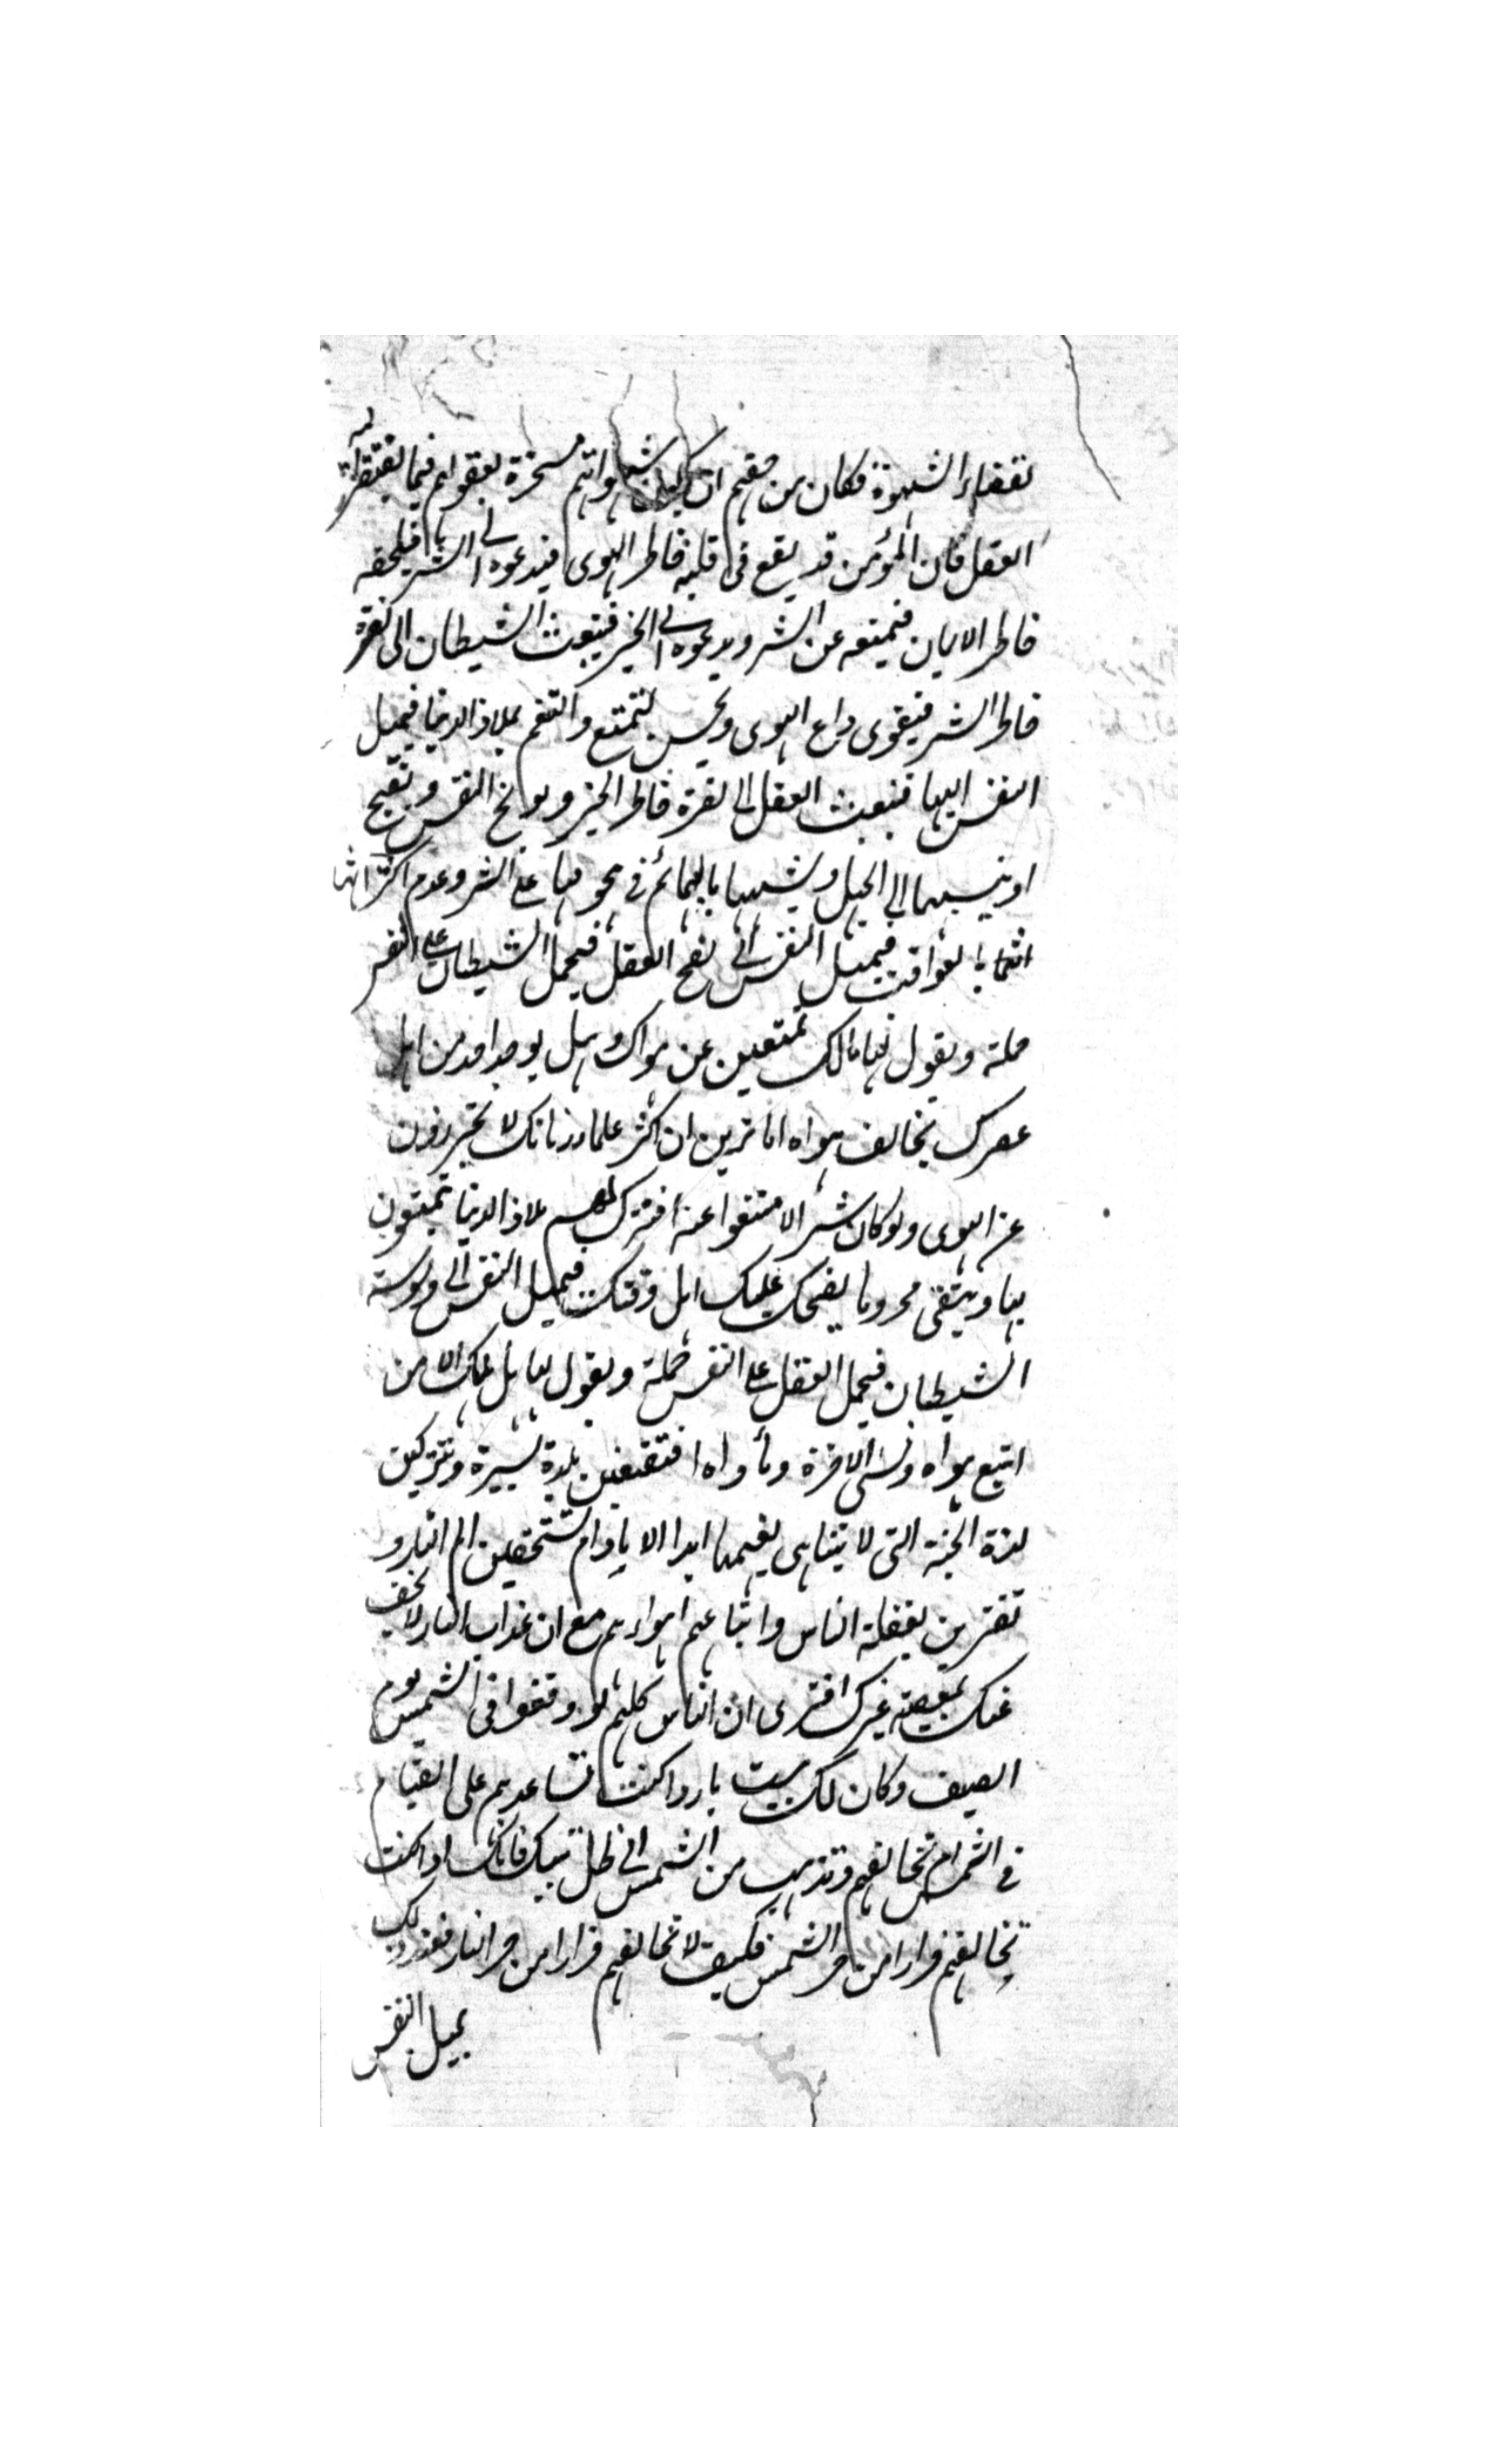 لقضاء الشهوة فكان من حقهم ان يكون شهواتهم مسخرة لعقولهم فيما يقتضيه
العقل فان المؤمن قد يقع في قلبه خاطر الهوى فيدعوه الى الشر فيلحقه
خاطر الايمان فيمنعه عن الشر ويدعوه الى الخير فينبعث الشيطان الى نصرة
خاطر الشر فيقوى داع الهوى ويحسن التمتع والتنعم بملاذ الدنيا فيميل
النفس اليها فينبعث العقل الى نصرة خاطر الخير ويوبخ النفس ويقبح
او ينسبها الى الجهل ويشبهها بالبهائم في هجومها على الشر وعدم اكتراثها
بالعواقب فيميل النفس الى نصح العقل فيحمل الشيطان على النفس
حملة ويقول لها مالك تمتنعين عن هواك وهل يوجد احد من اهل
عصرك يخالف هواه اما ترين ان اكثر علماء زمانك لا يحترزون
عن الهوى ولو كان شرا لامتنعوا عنه افتترك لهم ملاذ الدنيا يتمتعون
بها ويبقى محروما يضحك عليك اهل وقتك فيميل النفس الى وسوسة
الشيطان فيحمل العقل على النفس حملة ويقول لها هل هلك الا من
اتبع هواه ونسي الاخرة ومأواه افتقنعين بلذة يسيرة وتتركين
لذة الجنة التي لا يتناهى نعيمها ابدا الاباد ام تستحقين الم النار و
تغترين بغفلة الناس واتباعهم اهواءهم مع ان عذاب النار لا يخف
عنك بمعصية غيرك افترى ان الناس كلهم لو وقفوا في الشمس يوم
الصيف وكان لك بيت بارد اكنت تساعدهم على القيام
في الشمس ام تخالفهم وتذهب من الشمس الى ظل بيتك فانك اذا كنت
تخالفهم فرارا من حر الشمس فكيف لا تخالفهم فرارا من حر النار فعند ذلك
يميل النفس